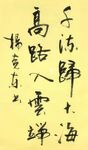 千流歸大海
高路入雲端
楊克東書